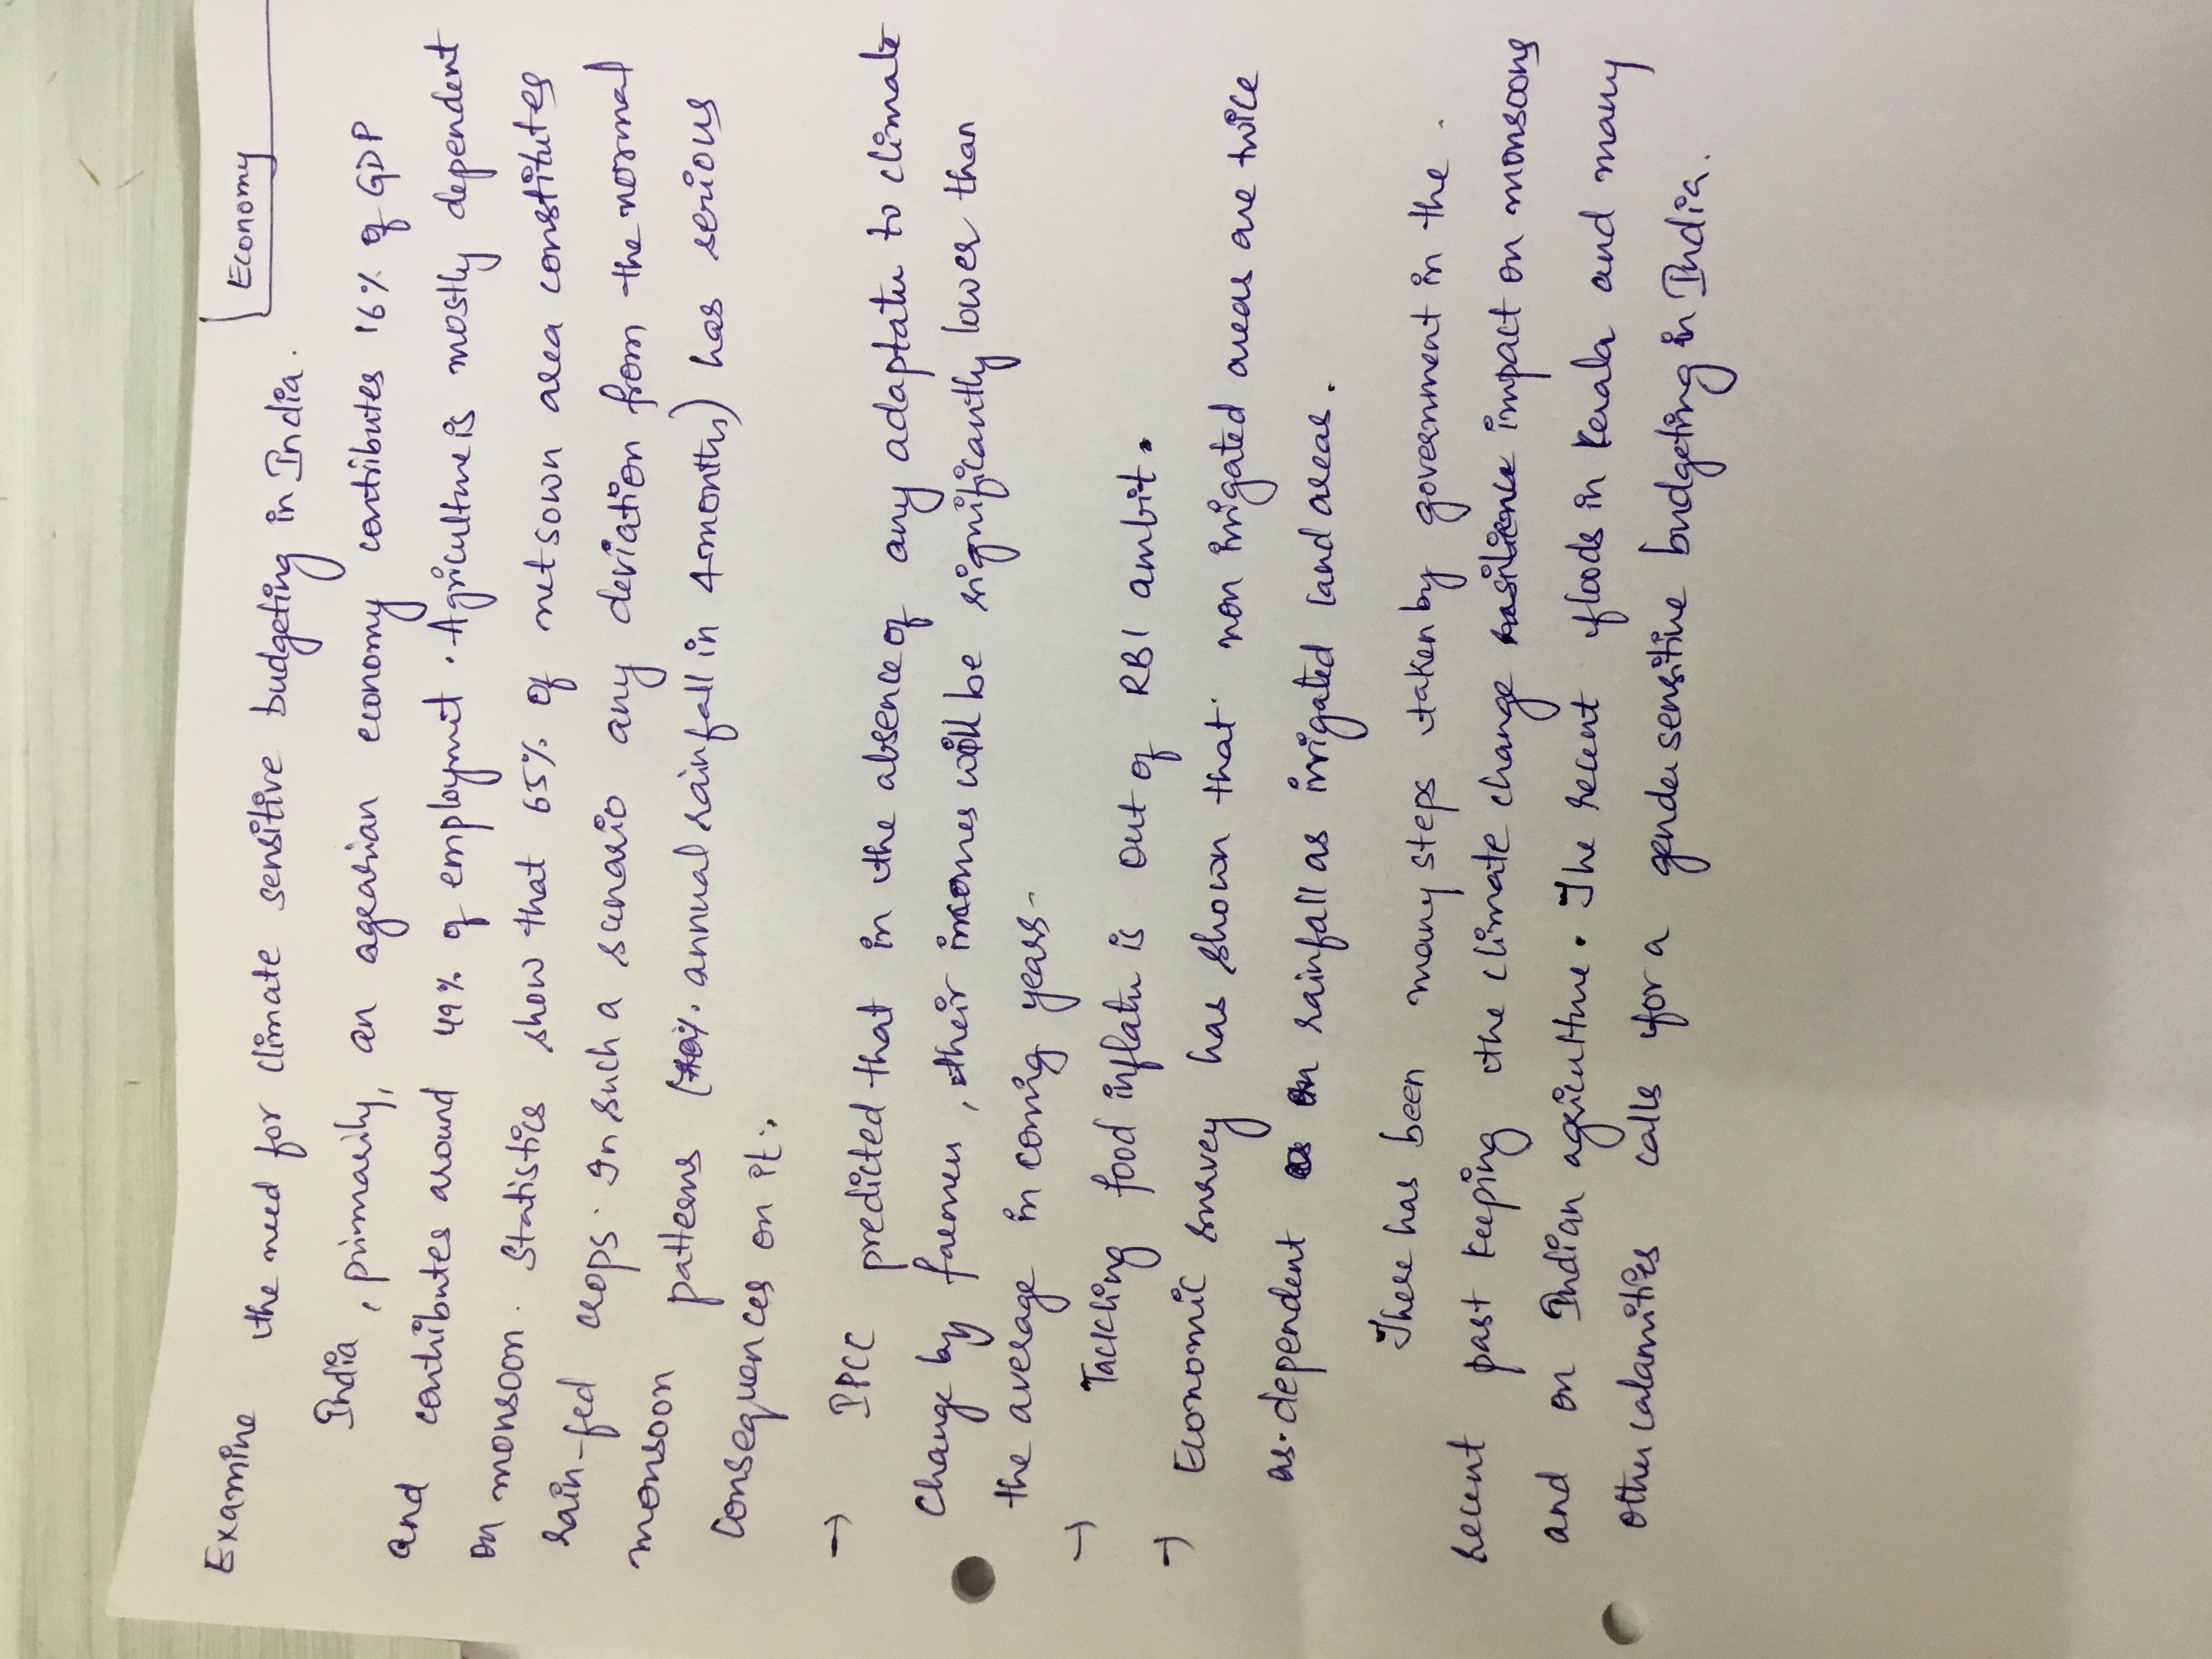 Economy
Examine the need for climate sensitive budgeting in India.
India, primarily, an agrarian economy contributes 16% of GDP
and contributes around 49% of employmt. Agriculture is mostly dependent
on monsoon. Statistics show that 65% of net sown area constitutes
rain-fed crops. In such a scenario any deviation from the normal
monsoon patterns ( annual rainfall in 4 months) has serious
consequences on it:.
→ IPCC predicted that in the absence of any adaptatn to climate
change by farmers, their incomes will be significantly lower than
the average in coming years.
→ Tackling food inflatn is out of RBI ambit.
→ Economic survey has shown that non irrigated areas are twice
as dependent on rainfall as irrigated land areas.
There has been many steps taken by government in the
recent past keeping the climate change impact on monsoons
and on Indian agriculture. The recent floods in Kerala and many
other calamities calls for a gender sensitive budgeting in India.